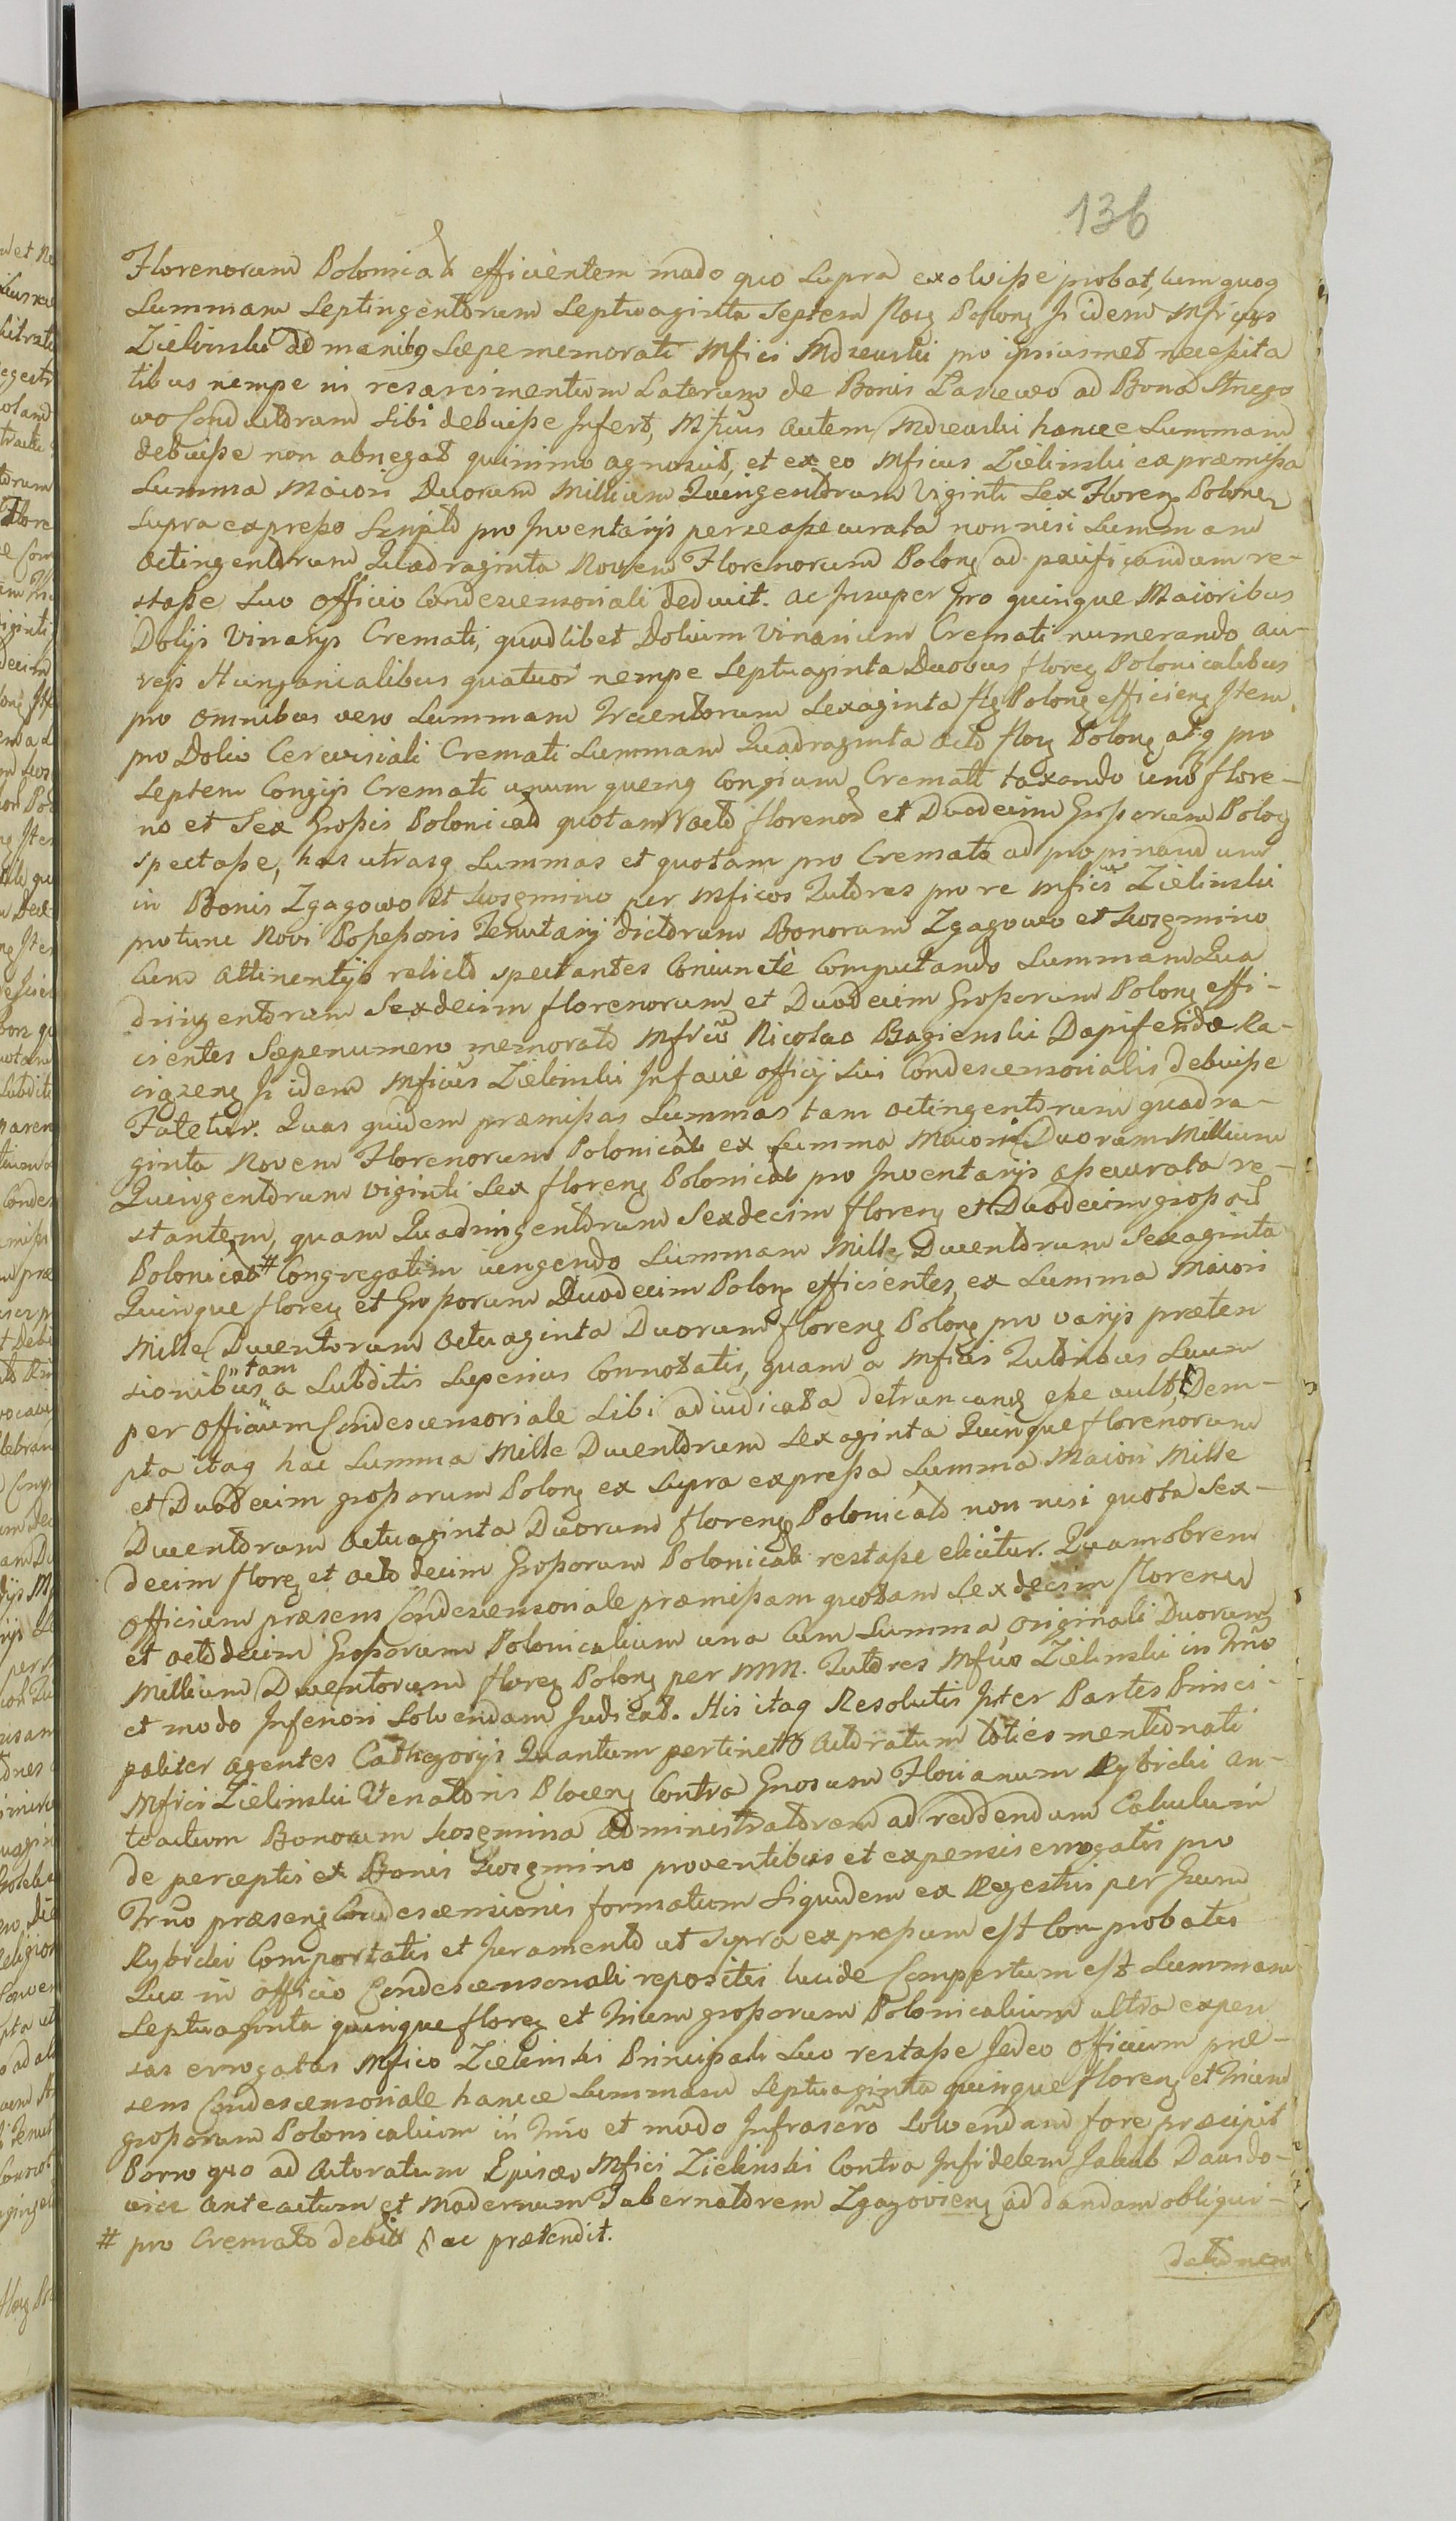 136
Florenorum Polonicał efficientem modo quo supra exolvisse probat, cumquoq
Summam Septingentorum Septuaginta Septem flor Polon Is idem Mficus
Zielinski ad manibq Sæpememorati Mfici Mdzewski pro ipsiusmet necessita
tibus nempe in resarcimentum Laterum de Bonis Łaszewo ad Bona Strzego
wo Conductorum sibi debuisse Infert, Mficus autem Mdzewski hancce Summam
debuisse non abnegat quinimo agnoscit, et ex eo Mficus Zielinski ex præmissa
Summa Maiori Duorum Millium Quingentorum Viginti Sex Floren Polon
supra expresso Scripto pro Inventarijs per se assecurata nonnisi Summam
Octingentorum Quadraginta Novem Florenorum Polon ad pacificandum re-
stasse Suo Officio Condescensoriali deduxit. ac Insuper pro quinque Maioribus
Dolijs Vinarijs Cremati, quodlibet Dolium Vinarium Cremati numerando au-
reis Hungaricalibus quatuor nempe Septuaginta Duobus floren Polonicalibus
pro omnibus vero Summam Trecentorum Sexaginta fl Polon efficien Item
pro Dolio Cerevisiali Cremati Summam Quadraginta octo flor Polon atq pro
Septem Congijs Cremati unum quemq Congium Cremati taxando uno flore-
no et Sex Grossis Polonicał quotam octo florenor et Duodecim Grossorum Polon
spectasse, has utrasq Summas et quotam pro Cremato ad propinandum
in Bonis Zgagowo et Koszmino per Mficos Tutores pro re Mfici Zielinski
protunc Novi Possessoris Tenutarij dictorum Bonorum Zgagowo et Koszmino
Cum Attinentijs relicto spectantes Coniunctè Computando Summam Qua
dringentorum Sexdecim florenorum et Duodecim Grossorum Polon effi-
cientes Sæpenumero memorato Mfico Nicolao Bagienski Dapifero Ra-
ciązen Is idem Mficus Zielinski Infacie Officij Sui Condescensorialis debuisse
Fatetur. Quas quidem præmissas Summas tam octingentorum quadra-
ginta Novem Florenorum Polonicał ex Summa Maiori Duorum Millium
Quingentorum viginti Sex floren Polonicał pro Inventarijs assecurata re-
stantem, quam Quadringentorum Sexdecim floren et Duodecim grossor
Polonicał # Congregatim iungendo Summam Mille Ducentorum Sexaginta
Quinque floren et Grossorum Duodecim Polon efficientes, ex Summa Maiori
Mille Ducentorum Octuaginta Duorum floren Polon pro varijs præten
sionibus, tam a Subditis Superius Connotatis, quam a Mficis Tutoribus Suum
per Officium Condescensoriale Sibi adiudicata detruncand esse vult, Dem-
pta itaq hac Summa Mille Ducentorum Sexaginta Quinque florenorum
et Duodecim grossorum Polon ex supra expressa Summa Maiori Mille
Ducentorum Octuaginta Duorum floren Polonicał non nisi quota Sex-
decim floren et octo decim Grossorum Polonicał restasse elicitur. Quamobrem
Officium præsens Condescensoriale præmissam quotam Sexdecim floren
et octodecim Grossorum Polonicalium una Cum Summa Originali Duorum
Millium Ducentorum floren Polon per MM. Tutores Mfico Zielinski in Trno
et modo Inferiori Solvendam Iudicat. His itaq Resolutis Inter Partes Princi-
paliter agentes Cathegorijs Quantum pertinet Actoratum toties mentionati
Mfici Zielinski Venatoris Plocen Contra Gnosum Florianum Rybicki an-
teactum Bonorum Koszmino Administratorem ad reddendum Calculum
de perceptis ex Bonis Koszmino proventibus et expensis errogatis pro
Trno præsen Condescensionis formatum Siquidem ex Regestris per Gnum
Rybicki Comportatis et Iuramento ut Supra expressum est Comprobatis
Quo in Officio Condescensoriali repositis lucide Compertum est Summam
Septuaginta quinque floren et Trium grossorum Polonicalium ultra expen
sas errogatas Mfico Zielinski Principali Suo restasse Ideo Officium præ-
sens Condescensoriale hancce Summam Septuaginta quinque floren et Trium
grossorum Polonicalium in Trno et modo Infrascro Solvendam fore præcipit
Porro quo ad Actoratum Eiusdem Mfici Zielinski Contra Infidelem Jakub Dawido-
wicz anteactum et Modernum Tabernatorem Zgagovien ad dandam obligui-
# pro Cremato debitę ac prætendit.
dationem